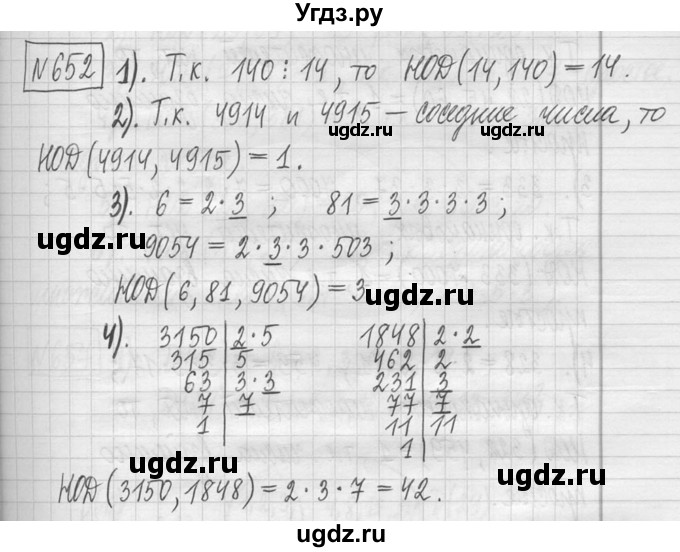 Угдз.ру
N652 1). Т.к. 140 ⋮ 14, то НОД(14,140) = 14.
2). Т.к. 4914 и 4915 – соседние числа, то
НОД(4914, 4915) = 1.
3). 6 = 2·3 ; 81 = 3·3·3·3 ;
9054 = 2·3·3·503 ;
НОД(6, 81, 9054) = 3
4). 3150 | 2·5 1848 | 2·2
315 | 5 462 | 2
63 | 3·3 231 | 3
7 | 7 77 | 7
1 | 11 | 11
1 |
НОД(3150, 1848) = 2·3·7 = 42.
ugdz.ru
ugdz.ru
ugdz.ru
ugdz.ru
ugdz.ru
ugdz.ru
ugdz.ru
ugdz.ru
ugdz.ru